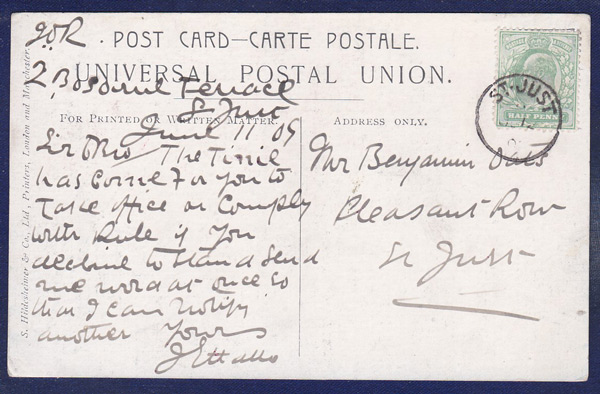 IOR
POST CARD—CARTE POSTALE.
UNIVERSAL POSTAL UNION.
2 Bosorne Terrace
St Just
FOR PRINTED OR WRITTEN MATTER.
ADDRESS ONLY.
June 11 09
Sir & Bro The Time
has come for you to
Take office or Comply
with Rule if you
decline to stand send
me word at once so
that I can notify
another Yours
Mr Benjamin Oats
Pleasant Row
St Just
ST. JUST
HALF PENNY
S. Hildesheimer & Co., Ltd., Printers, London and Manchester.